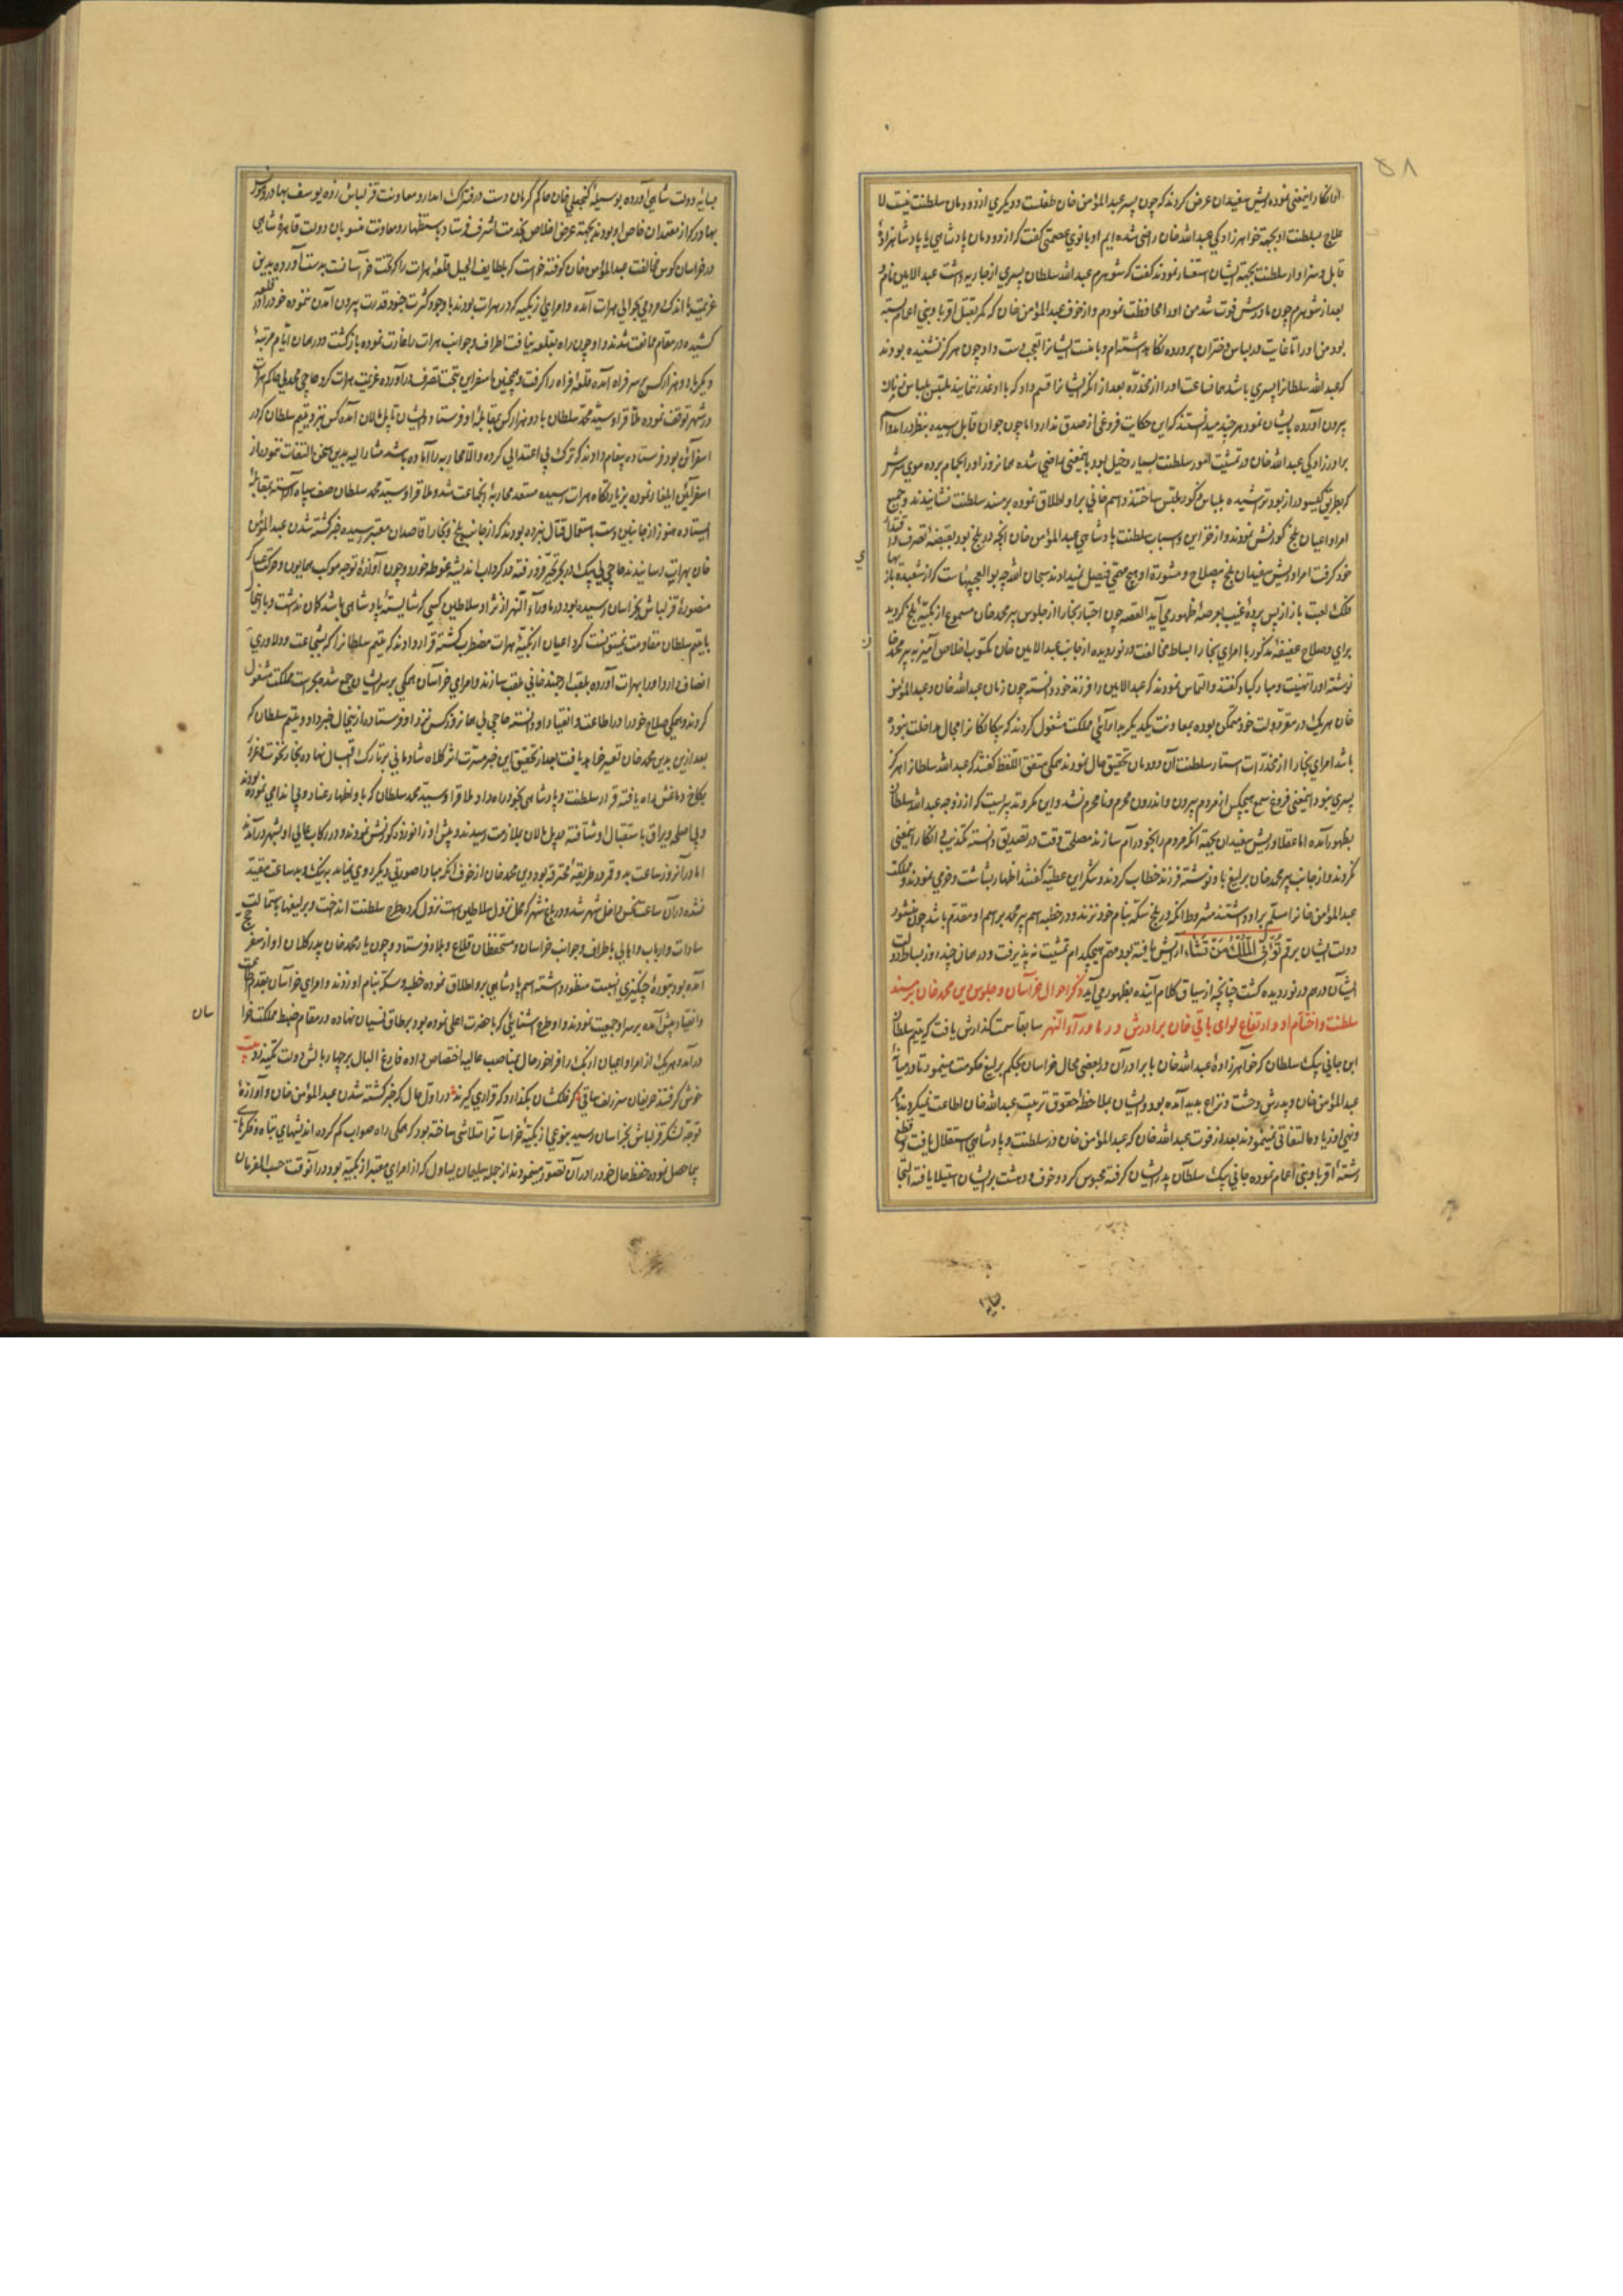 ۵۸
نموده ریش سفیدان عرض کردند که چون پسر عبدالمؤمن خان طفلست و دیگری از دودمان سلطنت نیست لا
علاج بسلطنت او بجهة خواهرزادگی عبدالله خان راضی شده ایم او بانوی عصمتی گفت که از دودمان پادشاهی یا پادشاهزاده
قابل و سزاوار سلطنت بجهة ایشان استفسار نمودند گفت که شوهرم عبدالله سلطان پسری از جاریه داشت عبدالامین نام و
بعد از شوهرم چون مادرش فوت شد من او را محافظت نمودم و از خوف عبدالمؤمن خان که کمر بقتل اقربا و بنی اعمام بسته
بود من او را تا غایت در لباس دختران پرورده نگاه داشته ام و باعث ایشان تعجب دست داد چون هرگز نشنیده بودند
که عبدالله سلطان را پسری باشد همان ساعت او را از مخدره بعد از آنکه ایشانرا قسم داد که با او غدر ننمایند بلباس زنان
بیرون آورده بایشان نمود هر چند میدانستند که این حکایت فروغی از صدق ندارد اما چون جوان قابل رسیده بنظر درآمد و اسم
برادرزادگی عبدالله خان در تمشیت امور سلطنت بسیار دخیل بود باینمعنی راضی شده همان روز او را بحمام برده موی سرش
که بطریق گیسو دراز بود تراشیده بلباس ذکور ملبس ساختند و اسم خانی بر او اطلاق نموده بر مسند سلطنت نشانیدند و جمیع
امرا و اعیان بلخ کورنش نمودند و از خزاین و اسباب سلطنت پادشاهی عبدالمؤمن خان آنچه در بلخ بود بقبضه تصرف و اقتدار
خود گرفت امرا و ریش سفیدان بلخ بصلاح و مشورة او هیچ مهمی فیصل نمیدادند سبحان الله چه بوالعجبیهاست که از شعبده بازیهای
فلک لعبت باز از پس پرده غیب بعرصه ظهور می آید القصه چون اخبار بخارا از جلوس پیر محمد خان مسموع ازبکیه بلخ گردید
برای و صلاح عفیفه مذکور با امرای بخارا بساط مخالفت درنوردیده از جانب عبدالامین خان مکتوب اخلاص آمیز به پیر محمد خان
نوشته او را تهنیت و مبارکباد گفتند و التماس نمودند که عبدالامین را فرزند خود دانسته چون زمان عبدالله خان و عبدالمؤمن
خان هر یک در مقر دولت خود متمکن بوده بمعاونت یکدیگر بدارائی مملکت مشغول گردند که بیگانگانرا مجال مداخلت نبوده
باشد امرای بخارا از مخدرات استار سلطنت آن دودمان تحقیق حال نمودند همگی متفق اللفظ گفتند که عبدالله سلطان را هرگز
پسری نبود و اینمعنی فروغ سمع هیچکس از مردم بیرون و اندرون محرم و نامحرم نشد و این مکر و تدبیریست که از زوجه عبدالله سلطان
بظهور آمده اما عقلا و ریش سفیدان بجهة آنکه مردم را بخود رام سازند مصلحت وقت در تصدیق دانسته تکذیب و انکار اینمعنی
نکردند و از جانب پیر محمد خان یرلیغ باو نوشته فرزند خطاب کردند و شکر این عطیه گفتند اظهار بشاشت و خرمی نمودند و مملکت
عبدالمؤمن خان را مسلم بر او داشتند مشروط آنکه در بلخ سکه بنام خود نزنند و در خطبه اسم پیر محمد بر اسم او مقدم باشد چون منشور
دولت ایشان برقم تُؤتِی المُلکَ مَن تَشاء آرایش نیافته بود مهم هیچکدام تمشیت نه پذیرفت و در همان چند روز بساط دولت
ایشان درهم درنوردیده گشت چنانچه از سیاق کلام آینده بظهور می آید ذکر احوال خراسان و جلوس دین محمد خان بر مسند
سلطنت و اختتام او و ارتفاع لوای باقی خان برادرش در ماورآءالنهر سابقا سمت گذارش یافت که یتیم سلطان
ابن جانی بیک سلطان که خواهرزاده عبدالله خان با برادران در بعضی محال خراسان بحکم یرلیغ حکومت مینمود تا در میانه
عبدالمؤمن خان و پدرش وحشت و نزاع پدید آمده بود و ایشان بملاحظه حقوق تربیت عبدالله خان اطاعت نمیکردند
التفاتی نمینمودند بعد از فوت عبدالله خان که عبدالمؤمن خان در سلطنت و پادشاهی استقلال یافت و قطع
رشته اقربا و بنی اعمام نموده جانی بیک سلطان پدر ایشان گرفته محبوس کرد و خوف و دهشت بر ایشان استیلا یافته التجا
بپایه دولت شاهی آورده بوسیله گنجعلی خان حاکم کرمان دست در فتراک امداد و معاونت قزلباش زده یوسف بهادر و
بهادر که از معتمدان خاص او بودند بجهة عرض اخلاص بخدمت اشرف فرستاد و باستظهار و معاونت منسوبان دولت قاهره شاهی
در خراسان کوس مخالفت عبدالمؤمن خان کوفته خواست که بلطایف الحیل قلعه هرات را که تخت خراسانست بدست آورده بدین
عزیمت با اندک مردمی بحوالی هرات آمده و امرای ازبکیه که در هرات بودند با وجود کثرت جنود قدرت بیرون آمدن ننموده خود را در قلعه
کشیده در مقام ممانعت شدند و او چون راه بقلعه نیافت اطراف و جوانب هرات را غارت نموده بازگشت و در همان ایام مرتبه
دیگر با دو هزار کس بر سر فراه آمده قلعه فراه را گرفت و همچنین اسفراین بتحت تصرف درآورده عزیمت هرات کرد حاجی محمد بی حاکم هرات
در شهر توقف نموده ملا قرا و سید محمد سلطان با دو هزار کس بمقابله او فرستاد و ایشان تا پل مالان آمده کس نزد یتیم سلطان که در
اسفراین بود فرستاده پیغام دادند که ترک بی اعتدالی کرده والا محاربه را آماده باشد مشارالیه بدین سخن التفات ننموده از
اسفراین ایلغار نموده بزیارتگاه هرات رسیده مستعد محاربه آنجماعت شد و ملا قرا و سید محمد سلطان صف سپاه آراسته بمقابله
ایستاده هنوز از جانبین دست باستعمال قتال نبرده بودند که از جانب بلخ و بخارا قاصدان معتبر رسیده خبر کشته شدن عبدالمؤمن
خان بهرات رسانیدند حاجی بی بیک در بحر تحیر فرو رفته در گرداب اندیشه غوطه خورد و چون آوازه توجه موکب همایون و حرکت عساکر
منصوره قزلباش بخراسان رسیده بود و در ماورآءالنهر از نژاد سلاطین کسی که شایسته پادشاهی باشد گمان نداشت و با اینحال
با یتیم سلطان مقاومت نمیتوانست کرد اعیان ازبکیه هرات مضطرب گشته قرار دادند که یتیم سلطان را که بشجاعت و دلاوری
انصاف دارد او را بهرات آورده بلقب ارجمند خانی ملقب سازند و امرای خراسان همگی بر سر ایشان جمع شده بحراست مملکت مشغول
گردند و همگی صلاح خود را در اطاعت و انقیاد او دانسته حاجی بی همان روز کس نزد او فرستاده از اینحال خبر داد و یتیم سلطان که
بعد ازین بدین محمد خان تعبیر خواهد یافت بعد از تحقیق این خبر مسرت اثر کلاه شادمانی بر تارک اقبال نهاده بخار نخوت و غرور
بکاخ دماغش راه یافته قرار سلطنت و پادشاهی بخود راه داد و ملا قرا و سید محمد سلطان که باو اظهار عناد و بی اندامی نموده بودند
و بی اصلحه و یراق باستقبال او شتافته در پل مالان بملازمت رسیدند و پیش او زانو زده کورنش نمودند و در رکاب عالی او بشهر درآمدند
اما در آنروز ساعت بد و قمر در طریقه محترقه بود دین محمد خان از خوف آنکه مبادا صورتی دیگر روی نماید به نیک و بد ساعت مقید
نشده در آن ساعت نحس داخل شهر شد و در باغ شهر که محل نزول سلاطین است نزول کرده طرح سلطنت انداخت و یرلیغها باستمالت
سادات و ارباب و اهالی باطراف و جوانب خراسان و مستحفظان قلاع و بلاد فرستاد و چون یار محمد خان پدر کلان او از سفر حج
آمده بود بتوره چنگیزی نسبت منظور داشته اسم پادشاهی برو اطلاق نموده خطبه و سکه بنام او زدند و امرای خراسان بقدم اطاعت
و انقیاد پیش آمده بر سر او جمعیت نمودند و او طرح آشنایی که با حضرت اعلی نموده بود بر طاق نسیان نهاده در مقام ضبط مملکت خراسان
درآمد و هر یک از امرا و اعیان ازبک را فراخور حال بمناصب عالیه اختصاص داده فارغ البال بر چهار بالش دولت تکیه زد بیت
خوش گرفتند حریفان سر زلف ساقی گر فلکشان بگذارد که قراری گیرند در اول حال که خبر کشته شدن عبدالمؤمن خان و آوازه
توجه لشکر قزلباش بخراسان رسید بنوعی ازبکیه خراسان را متلاشی ساخته بود که همگی راه صواب گم کرده اندیشهای تباه و فکرهای
بیحاصل نموده حفظ حال خود را در آن تصور مینمودند از جمله سلیمان یساول که از امرای معتبر ازبکیه بود در آنوقت حسب الفرمان